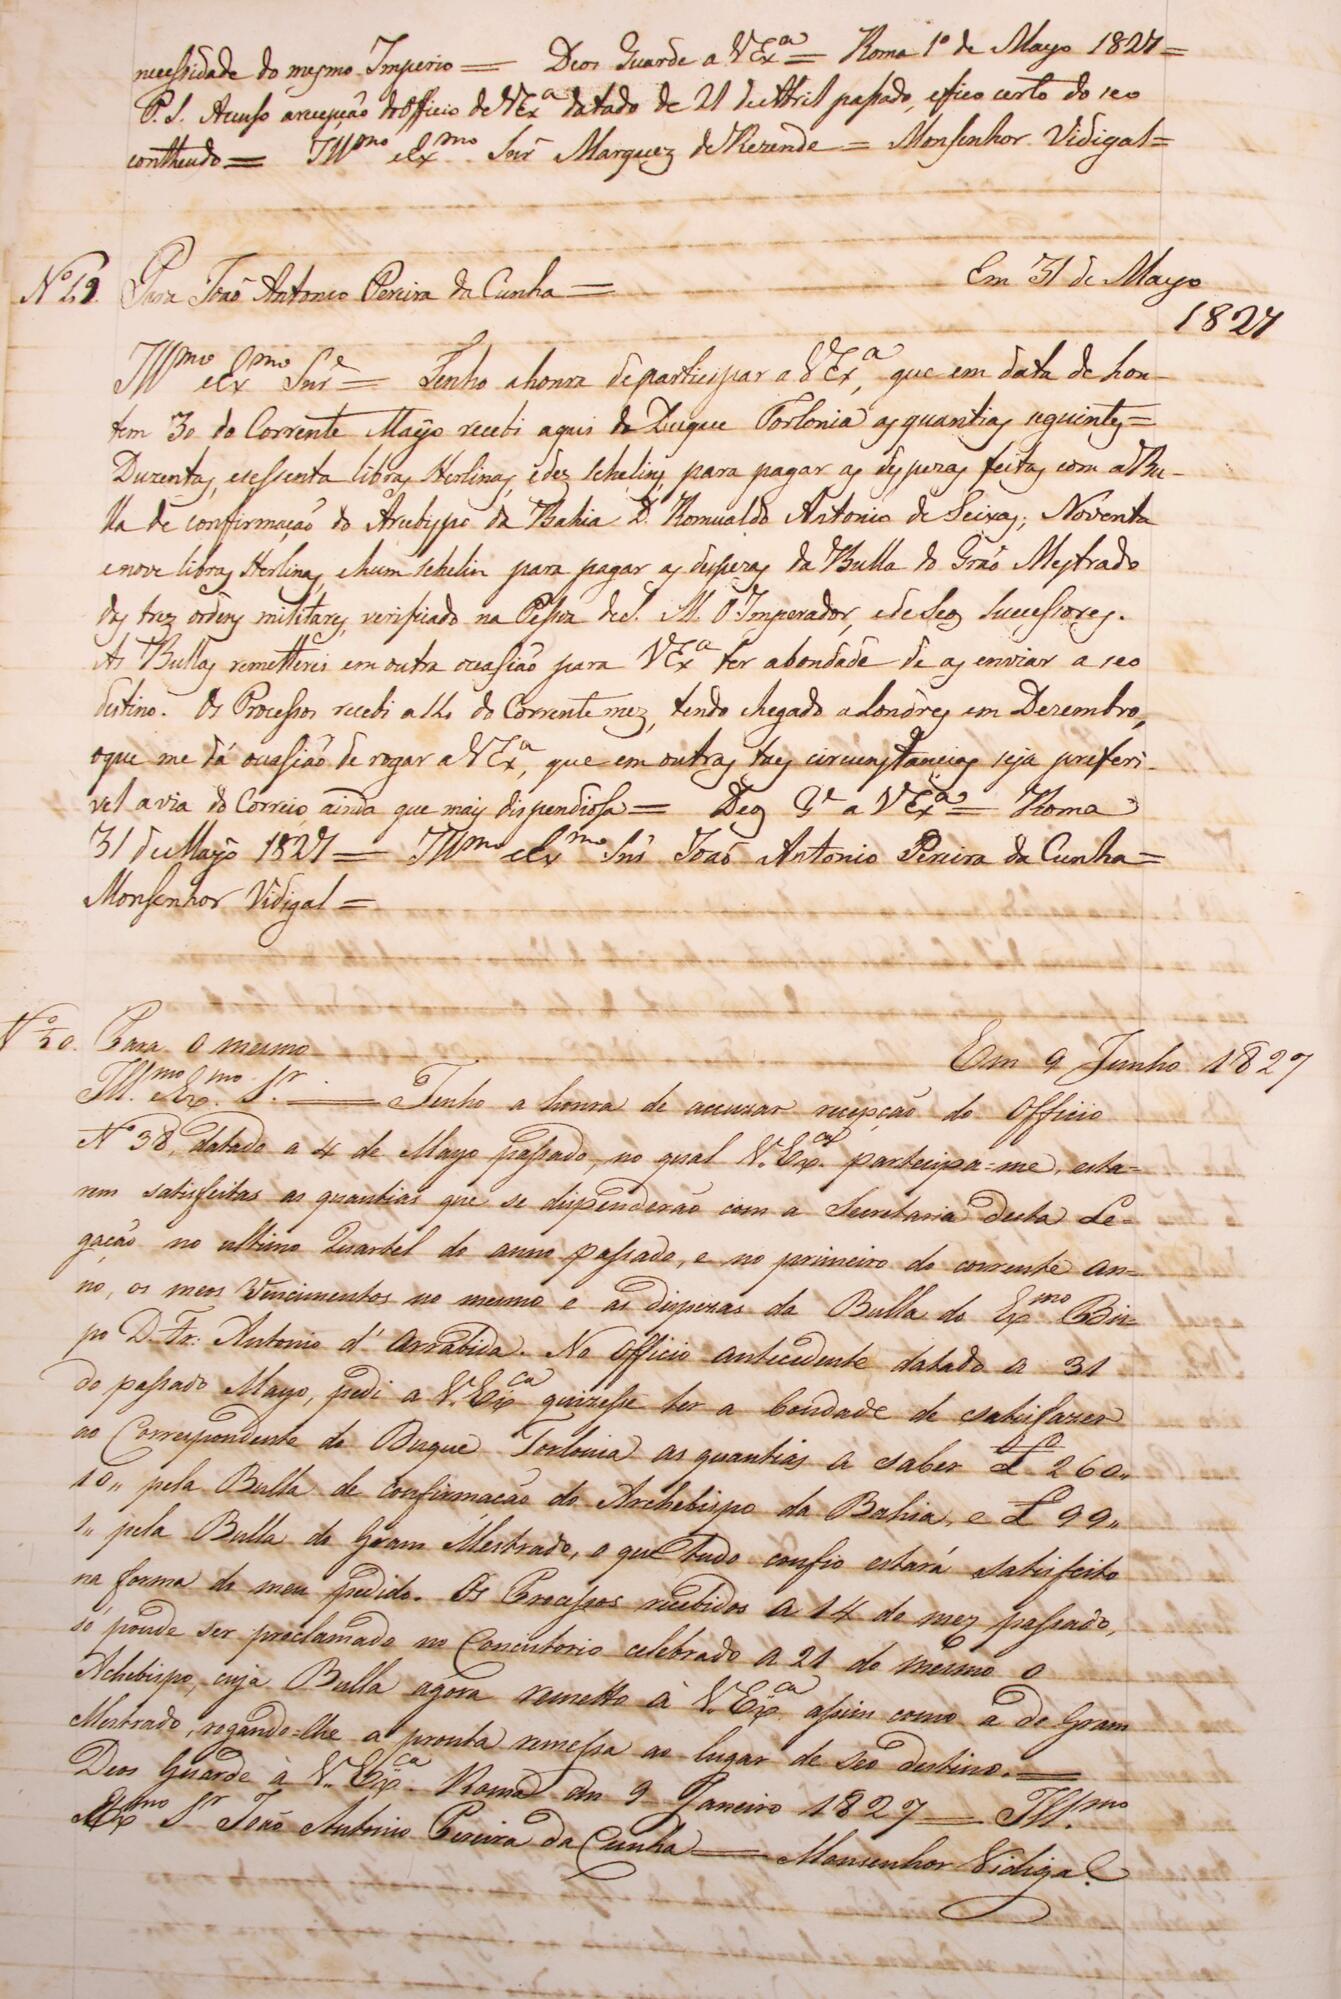 necessidade do mesmo Imperio = Deos Guarde a VEx.ª = Roma 1º de Mayo 1827 =
P. S. Acuso a recepção do Officio de VEx.ª datado de 21 de Abril passado, e fico certo do seo
contheudo = Ill.mo e Ex.mo Snr Marquez de Rezende = Monsenhor Vidigal =
Nº 29. Para João Antonio Pereira da Cunha = Em 31 de Mayo
1827
Ill.mo e Ex.mo Snr.e = Tenho a honra de participar a VEx.ª, que em data de hon-
tem 30 do Corrente Mayo recebi aqui do Duque Torlonia as quantias seguintes =
Duzentas, e sessenta libras sterlinas, e dez schelins para pagar as despezas feitas com a Bu-
lla de confirmação do Arcebispo da Bahia D. Romualdo Antonio de Seixas; Noventa
e nove libras sterlinas, e hum schelin para pagar as despezas da Bulla do Grão Mestrado
das trez ordens militares, verificado na Pessoa de S. M. O Imperador, e de Seos Successores.
As Bullas remetterei em outra occasião para VEx.ª ter a bondade de as enviar a seo
destino. Os Processos recebi a 14 do Corrente mez, tendo chegado a Londres em Dezembro,
o que me dá occasião de rogar a VEx.ª, que em outras taes circunstancias seja preferi-
vel a via do Correio ainda que mais dispendiosa = Deos G.e a VEx.ª = Roma
31 de Mayo 1827 = Ill.mo e Ex.mo Snr João Antonio Pereira da Cunha =
Monsenhor Vidigal =
Nº 30. Para o mesmo Em 9 Junho 1827
Ill.mo Ex.mo S.r = Tenho a honra de accuzar recepção do Officio
Nº 38, datado a 4 de Mayo passado, no qual V. Ex.ca partecipa-me, esta-
rem satisfeitas as quantias que se dispenderão com a Secretaria desta Le-
gação no ultimo Quartel do anno passado, e no primeiro do corrente an-
no, os meos Vencimentos no mesmo e as dispezas da Bulla do Ex.mo Bis-
po D. Fr: Antonio d' Arrabida. No Officio antecedente datado a 31
do passado Mayo, pedi a V. Ex.ca quizesse ter a bondade de satisfazer
ao Correspondente do Duque Torlonia as quantias a saber £ 260"
10" pela Bulla de Confirmação do Archebispo da Bahia, e £ 99"
1" pela Bulla do Gram Mestrado, o que tudo confio estará satisfeito
na forma do meu pedido. Os Processos recebidos a 14 do mez passado,
só poude ser proclamado no Concistorio celebrado a 21 do mesmo o
Achebispo, cuja Bulla agora remetto à V. Ex.ca assim como a do Gram
Mestrado, rogando-lhe a pronta remessa ao lugar de seo destino. =
Deos Guarde à V. Ex.ca. Roma aos 9 Janeiro 1827 = Ill.mo
Ex.mo S.r João Antonio Pereira da Cunha = Monsenhor Vidigal.